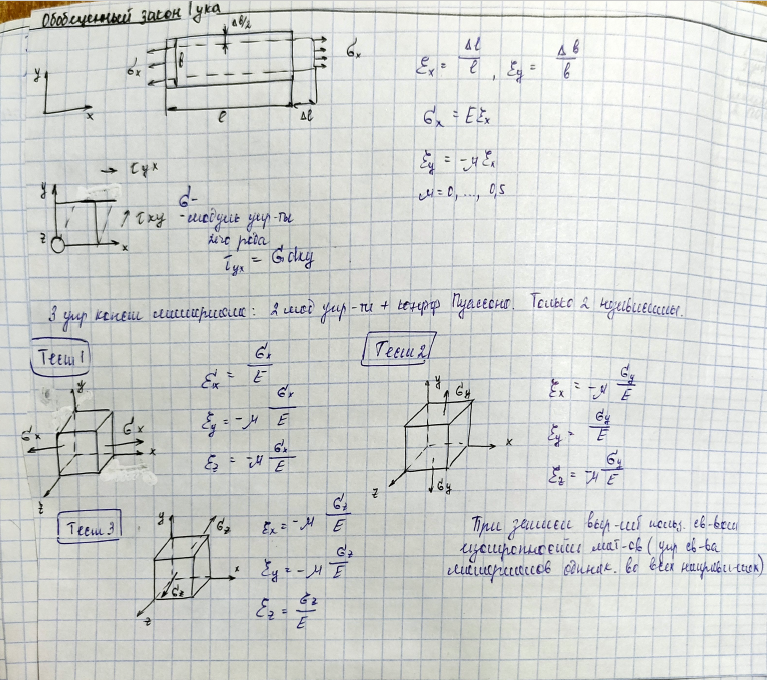 Обобщенный закон Гука
Δb/2
σx
b
σx
y
x
l
Δl
εx = Δl/l , εy = Δb/b
σx = Eεx
εy = -μεx
μ = 0, ..., 0,5
τyx
y
τxy
z
x
G-
-модуль упр-ти
2го рода
τyx = Gαxy
3 упр конст материала: 2 мод упр-ти + коэфф Пуассона. Только 2 независимы.
Тест 1
y
σx
σx
x
z
εx = σx/E
εy = -μ σx/E
εz = -μ σx/E
Тест 2
y
σy
x
z
σy
εx = -μ σy/E
εy = σy/E
εz = -μ σy/E
Тест 3
y
σz
x
σz
z
εx = -μ σz/E
εy = -μ σz/E
εz = σz/E
При записи выр-ий польз. св-вом
изотропности мат-ов (упр св-ва
материалов одинак. во всех направл-иях)